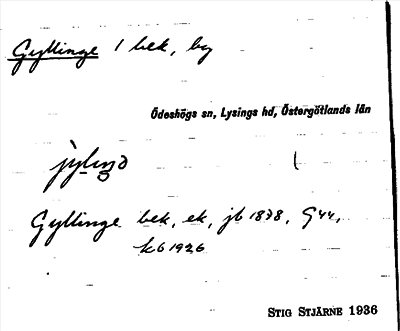 Gyllinge 1 bek, by
Ödeshögs sn, Lysings hd, Östergötlands län
Gyllinge bek, ek, jb 1878, G44,
kb 1926
STIG STJÄRNE 1936